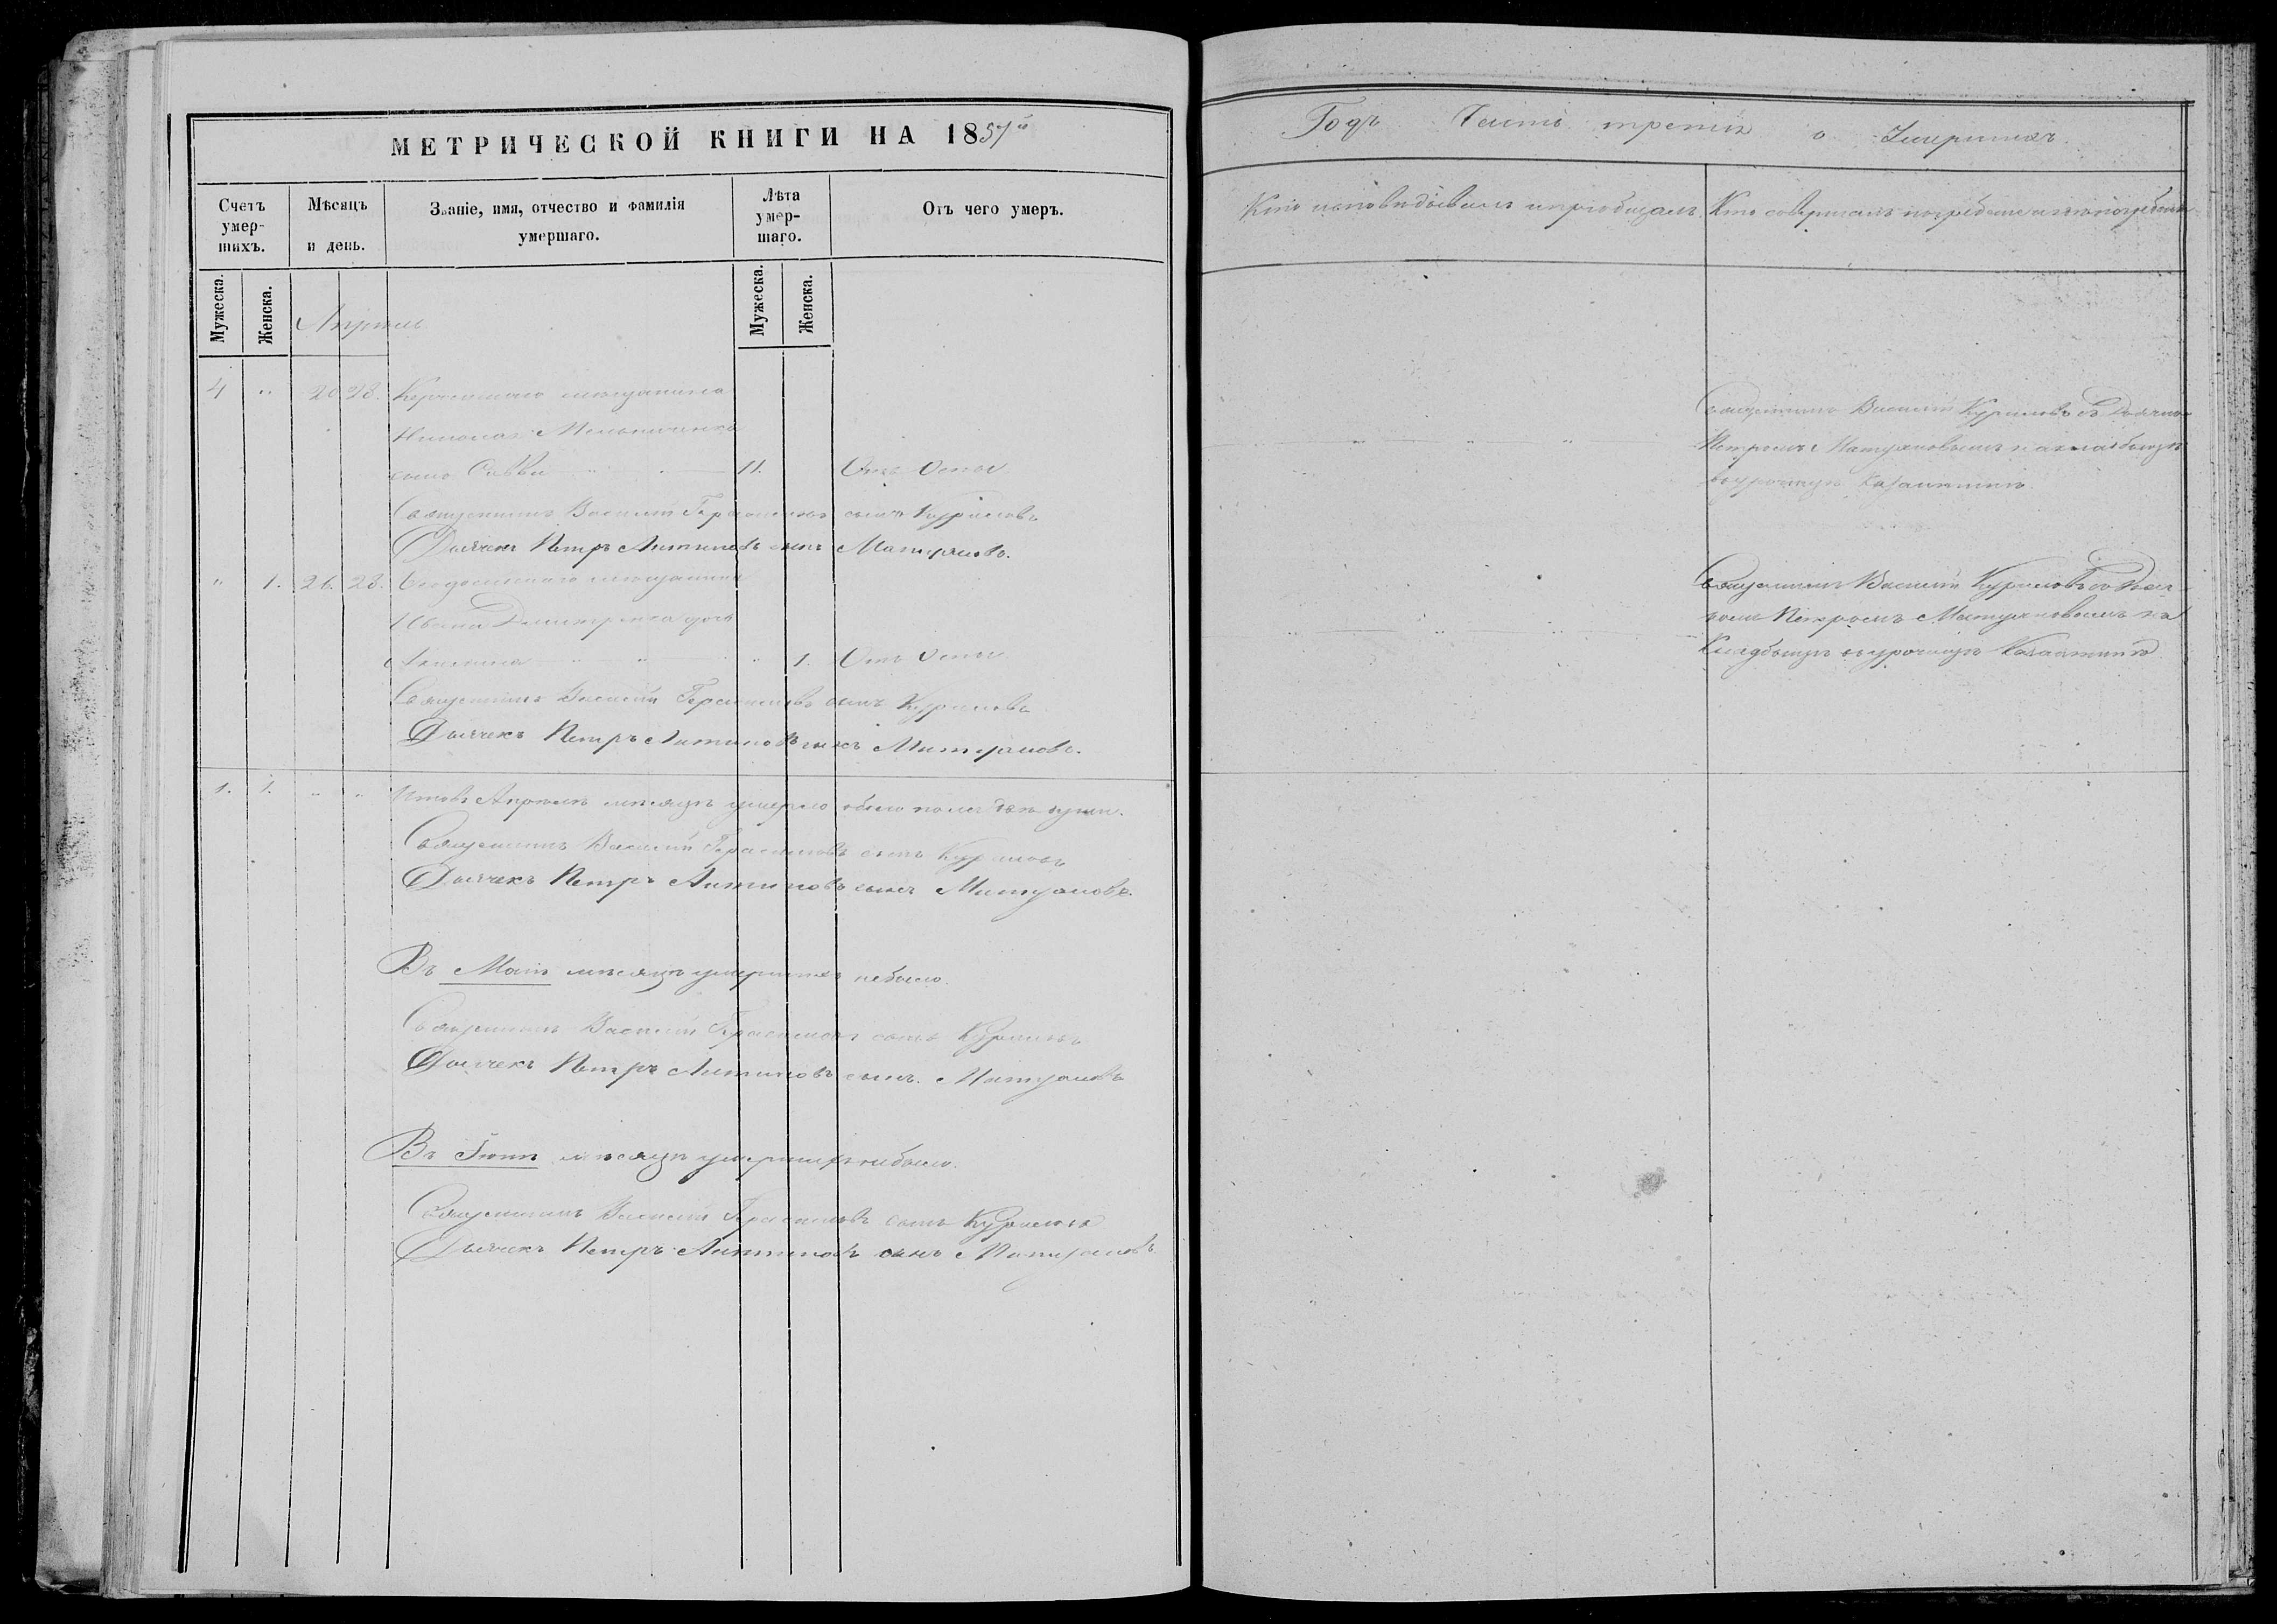 МЕТРИЧЕСКОЙ КНИГИ НА 1857й
Годъ Часть третія о Умершихъ.
Счетъ умер- шихъ.
Мѣсяцъ и день.
Званіе, имя, отчество и фамилія умершаго.
Лѣта умер- шаго.
Отъ чего умеръ.
Кто исповѣдывалъ и пріобщалъ.
Кто совершалъ погребеніе и гдѣ погребены
Мужеска.
Женска.
Мужеска.
Женска.
Апрѣль
4 " 20 23. Керченскаго мѣщанина
Николая Мельниченка
сынъ Савва " " 11. Отъ Оспы
Священникъ Василій Куриловъ съ Дьячкомъ
Петромъ Матушовымъ на кладбищѣ
въ урочищѣ
Священникъ Василій Герасимовъ сынъ Куриловъ
Дьячекъ Петръ Антиповъ сынъ
" 1. 26. 28. Феодосійскаго мѣщанина
Ивана Дмитренка дочь
" " 1. Отъ Оспы
Священникъ Василій Куриловъ съ Дьяч-
комъ Петромъ на
Кладбищѣ въ урочищѣ
Священникъ Василій Герасимовъ сынъ Куриловъ
Дьячекъ Петръ Антиповъ сынъ
1. 1. " " Итого въ Апрѣлѣ мѣсяцѣ умерло обоего пола двѣ души.
Священникъ Василій Герасимовъ сынъ Куриловъ
Дьячекъ Петръ Антиповъ сынъ
Въ Маѣ мѣсяцѣ умершихъ небыло.
Священникъ Василій Герасимовъ сынъ Куриловъ
Дьячекъ Петръ Антиповъ сынъ
Въ Іюнѣ мѣсяцѣ умершихъ небыло.
Священникъ Василій Герасимовъ сынъ Куриловъ
Дьячекъ Петръ Антиповъ сынъ